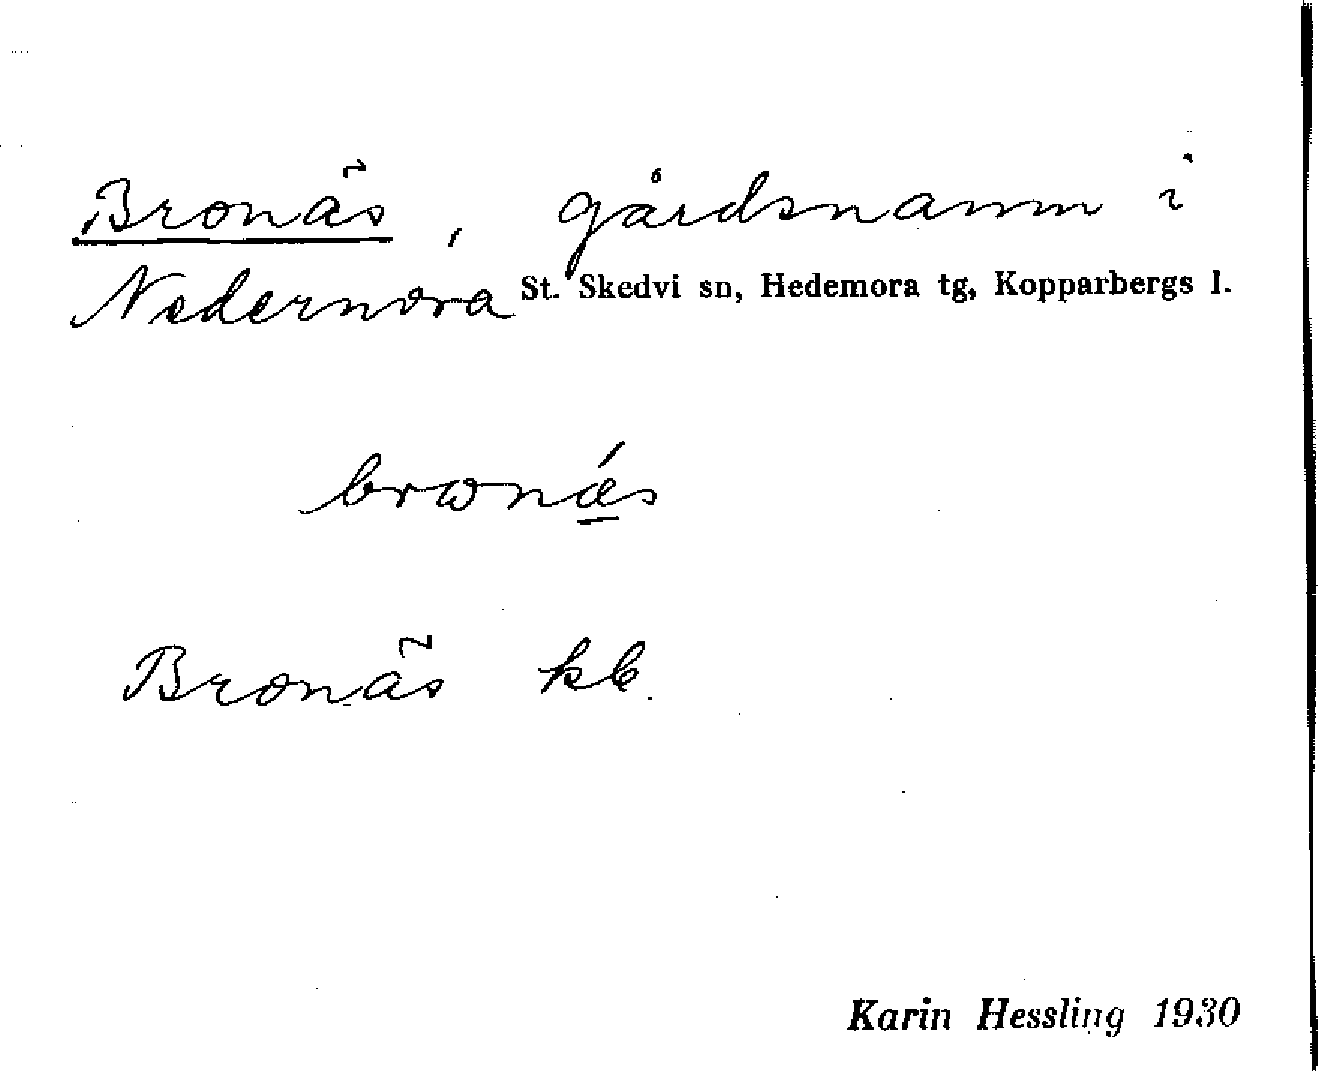 Bronäs, gårdsnamn i
Nedernora St. Skedvi sn, Hedemora tg, Kopparbergs l.
brωnǽs
Bronäs kb.
Karin Hessling 1930